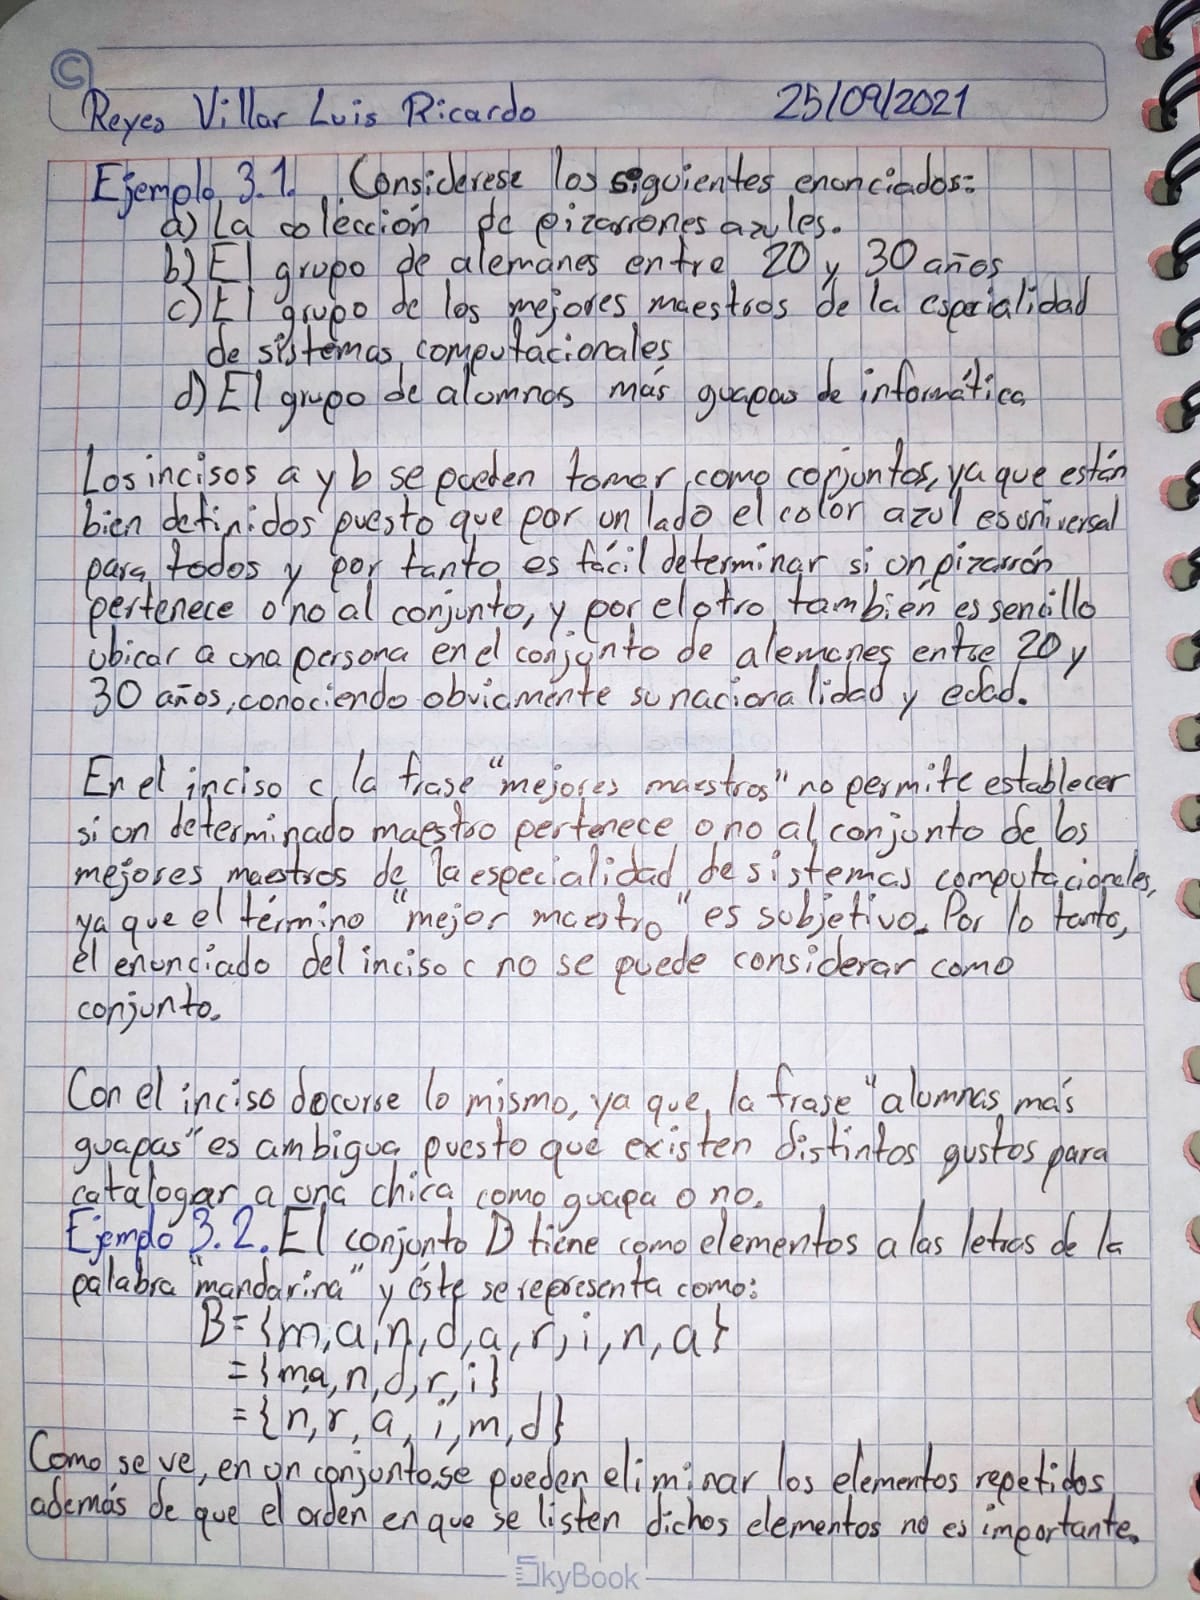 ©
Reyes Villar Luis Ricardo 25/09/2021
Ejemplo 3.1. Considerese los siguientes enunciados:
a) La colección de pizarrones azules.
b) El grupo de alemanes entre 20 y 30 años
c) El grupo de los mejores maestros de la especialidad
de sistemas computacionales
d) El grupo de alumnas más guapas de informática
Los incisos a y b se pueden tomar como conjuntos, ya que están
bien definidos puesto que por un lado el color azul es universal
para todos y por tanto es fácil determinar si un pizarrón
pertenece o no al conjunto, y por el otro también es sencillo
ubicar a una persona en el conjunto de alemanes entre 20 y
30 años, conociendo obviamente su nacionalidad y edad.
En el inciso c la frase "mejores maestros" no permite establecer
si un determinado maestro pertenece o no al conjunto de los
mejores maestros de la especialidad de sistemas computacionales,
ya que el término "mejor maestro" es subjetivo. Por lo tanto,
el enunciado del inciso c no se puede considerar como
conjunto.
Con el inciso d ocurre lo mismo, ya que la frase "alumnas más
guapas" es ambigua puesto que existen distintos gustos para
catalogar a una chica como guapa o no.
Ejemplo 3.2. El conjunto B tiene como elementos a las letras de la
palabra "mandarina" y éste se representa como:
B={m,a,n,d,a,r,i,n,a}
={m,a,n,d,r,i}
={n,r,a,i,m,d}
Como se ve, en un conjunto se pueden eliminar los elementos repetidos,
además de que el orden en que se listen dichos elementos no es importante.
SkyBook